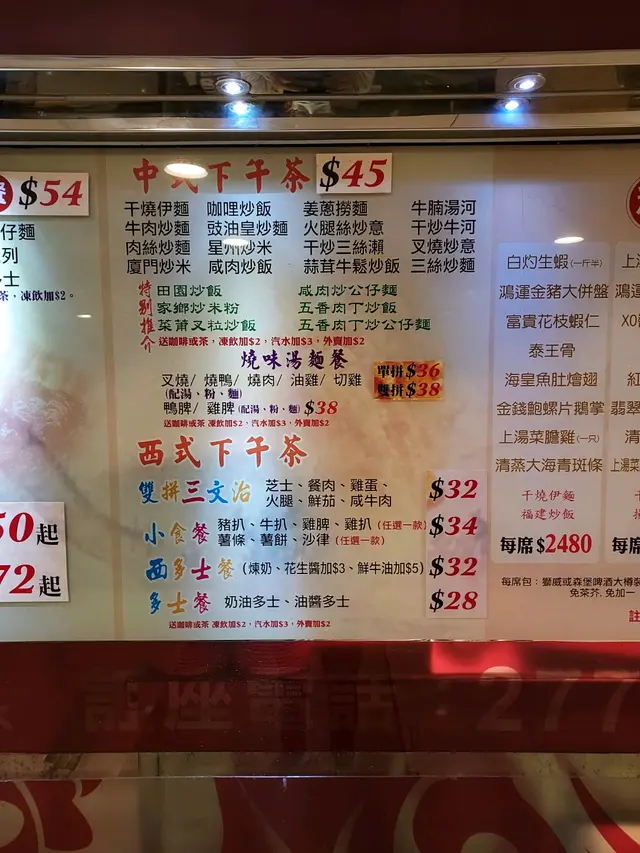 餐 $54
仔麵
列
士
茶，凍飲加$2。
50起
72起
中式下午茶 $45
干燒伊麵 咖哩炒飯 姜蔥撈麵 牛腩湯河
牛肉炒麵 豉油皇炒麵 火腿絲炒意 干炒牛河
肉絲炒麵 星州炒米 干炒三絲瀨 叉燒炒意
廈門炒米 咸肉炒飯 蒜茸牛鬆炒飯 三絲炒麵
特別推介
田園炒飯 咸肉炒公仔麵
家鄉炒米粉 五香肉丁炒飯
菜甫叉粒炒飯 五香肉丁炒公仔麵
送咖啡或茶，凍飲加$2，汽水加$3，外賣加$2
燒味湯麵餐
單拼$36
雙拼$38
叉燒/ 燒鴨/ 燒肉/ 油雞/ 切雞
(配湯、粉、麵)
鴨脾/ 雞脾 (配湯、粉、麵) $38
送咖啡或茶 凍飲加$2、汽水加$3、外賣加$2
西式下午茶
雙拼三文治 芝士、餐肉、雞蛋、
火腿、鮮茄、咸牛肉 $32
小食餐 豬扒、牛扒、雞脾、雞扒 (任選一款)
薯條、薯餅、沙律 (任選一款) $34
西多士餐 (煉奶、花生醬加$3、鮮牛油加$5) $32
多士餐 奶油多士、油醬多士 $28
送咖啡或茶 凍飲加$2，汽水加$3，外賣加$2
白灼生蝦(一斤半)
鴻運金豬大併盤
富貴花枝蝦仁
泰王骨
海皇魚肚燴翅
金錢鮑螺片鵝掌
上湯菜膽雞(一只)
清蒸大海青斑條
干燒伊麵
福建炒飯
每席$2480
每席包：獅威或森堡啤酒大樽裝
免茶芥，免加一
上湯
鴻運
XO
紅
翡翠
清
上湯
干燒
福建
每席
註
訂座電話：277